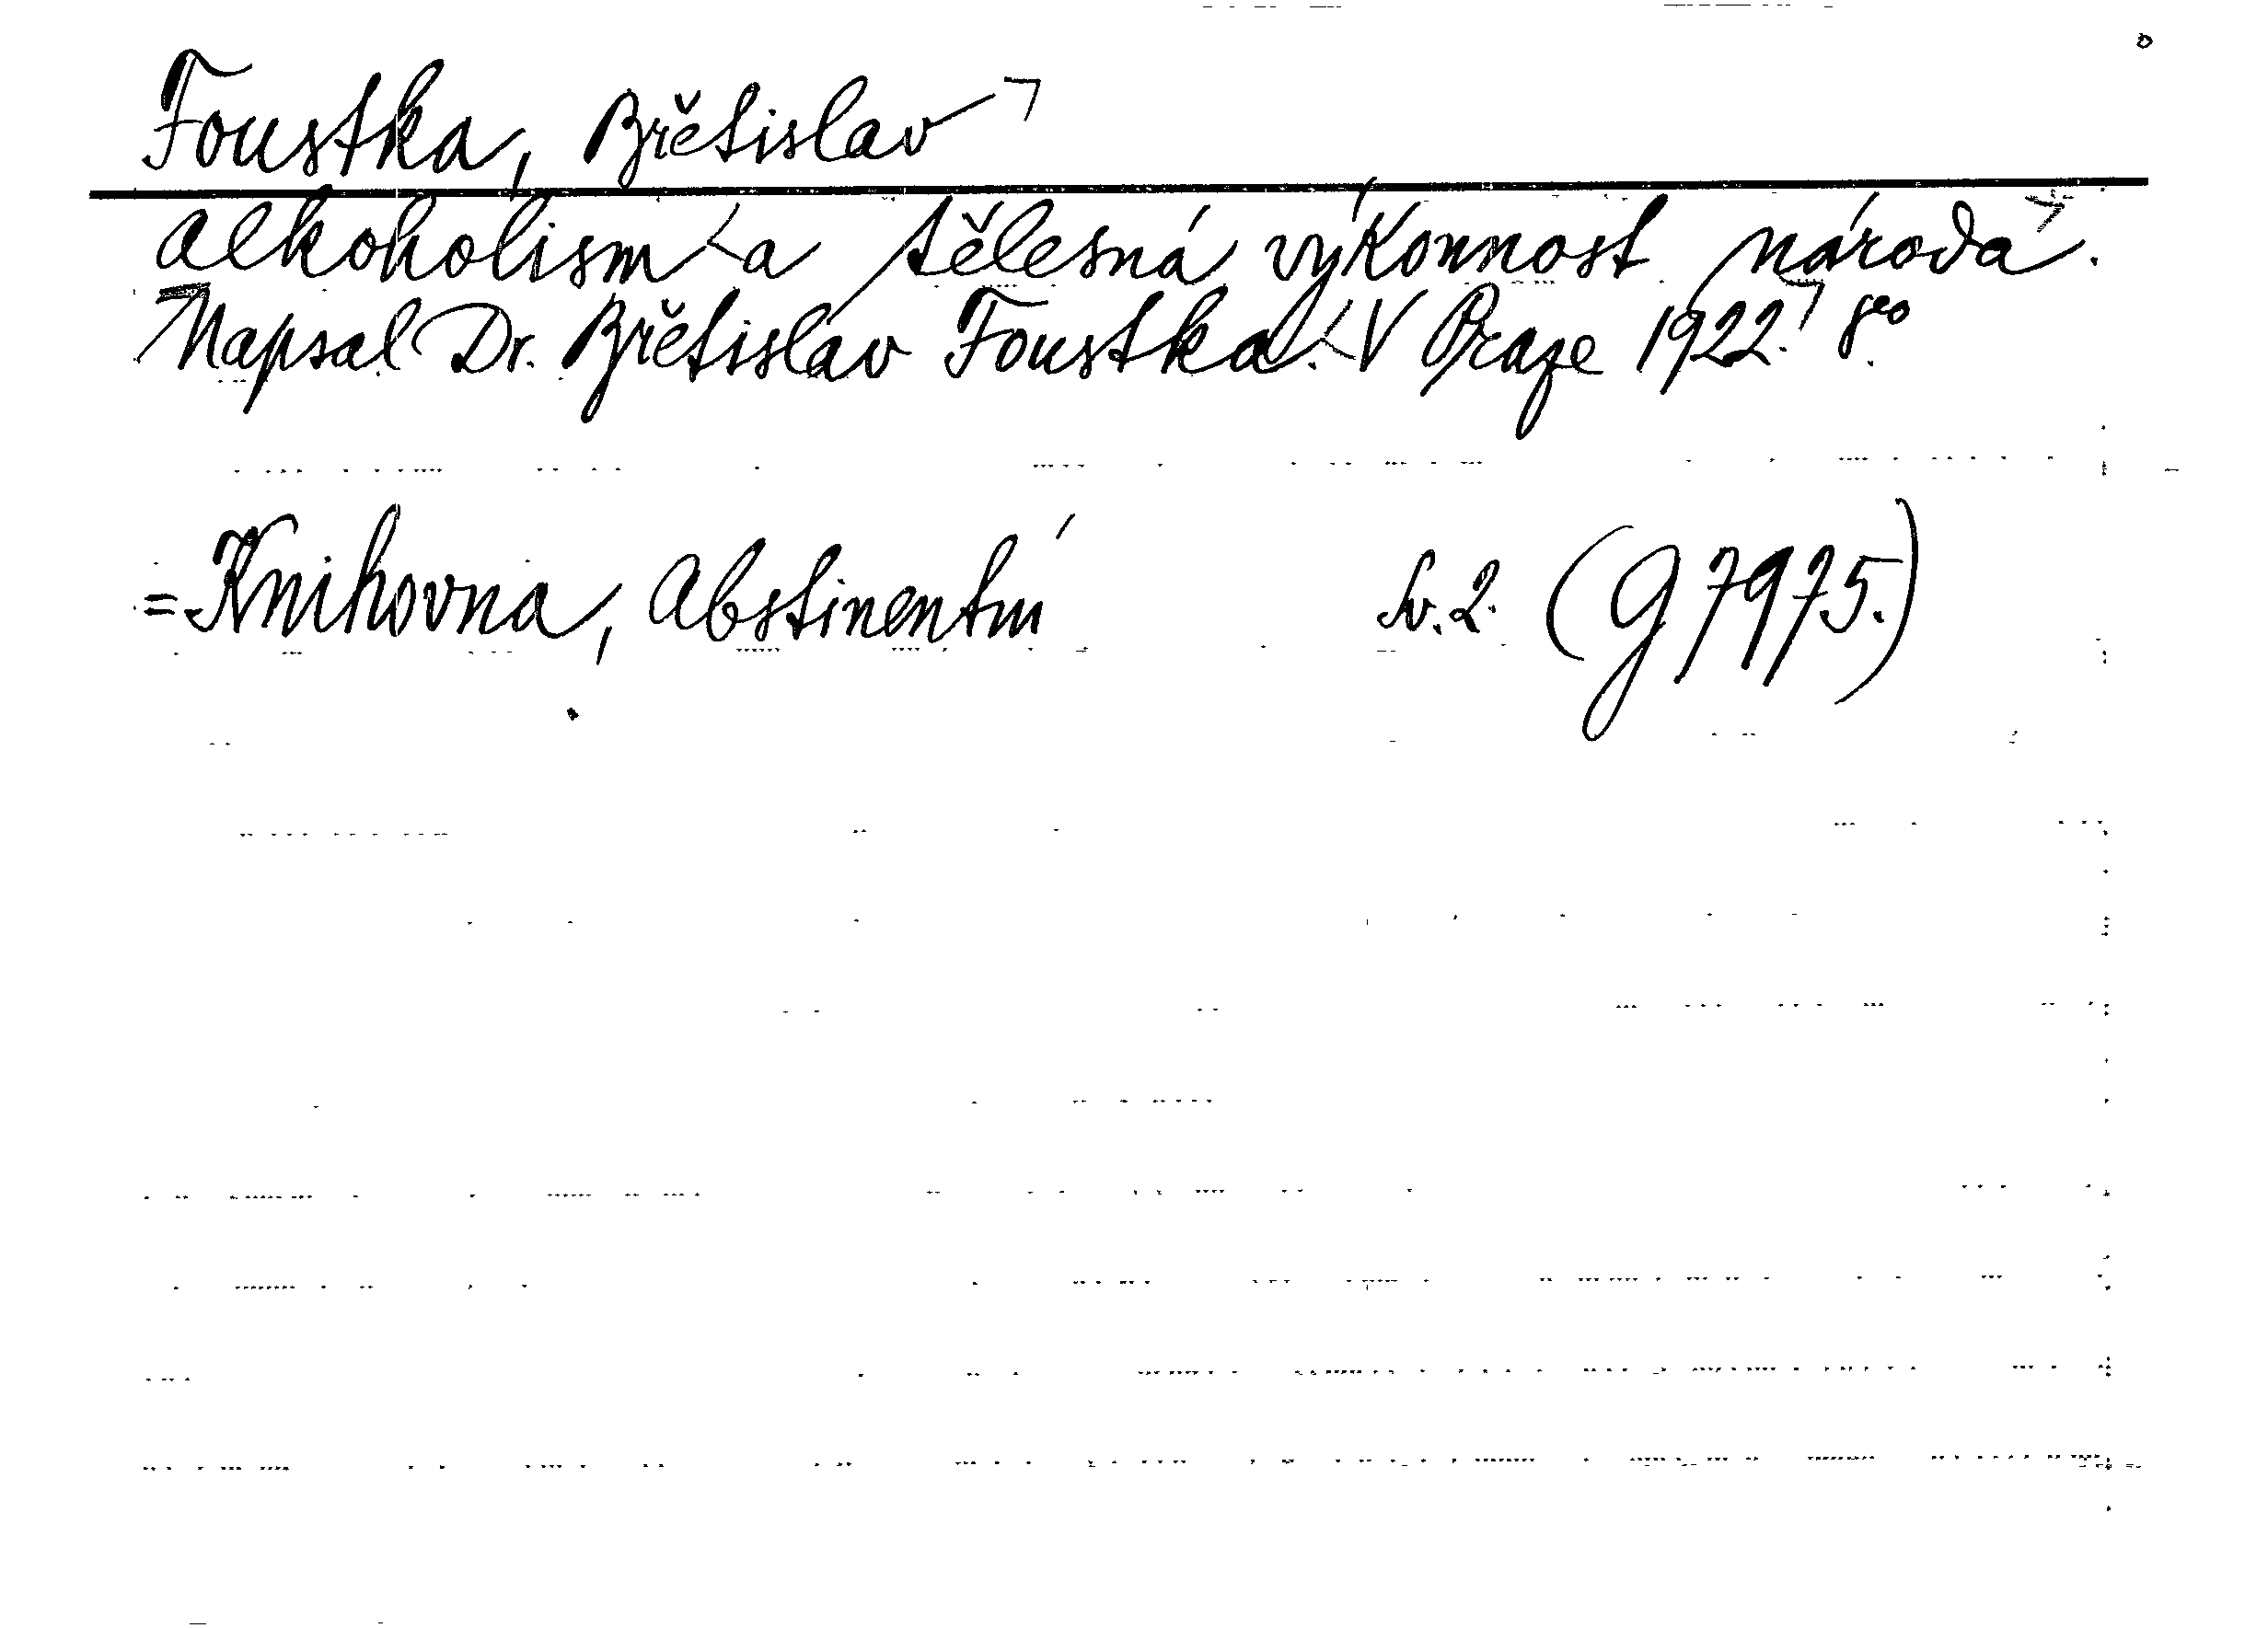 Foustka, Břetislav
Alkoholism a tělesná výkonnost národa.
Napsal Dr. Břetislav Foustka. V Praze 1922. 8º.
= Knihovna, Abstinentní Sv. 2. (G 7975.)